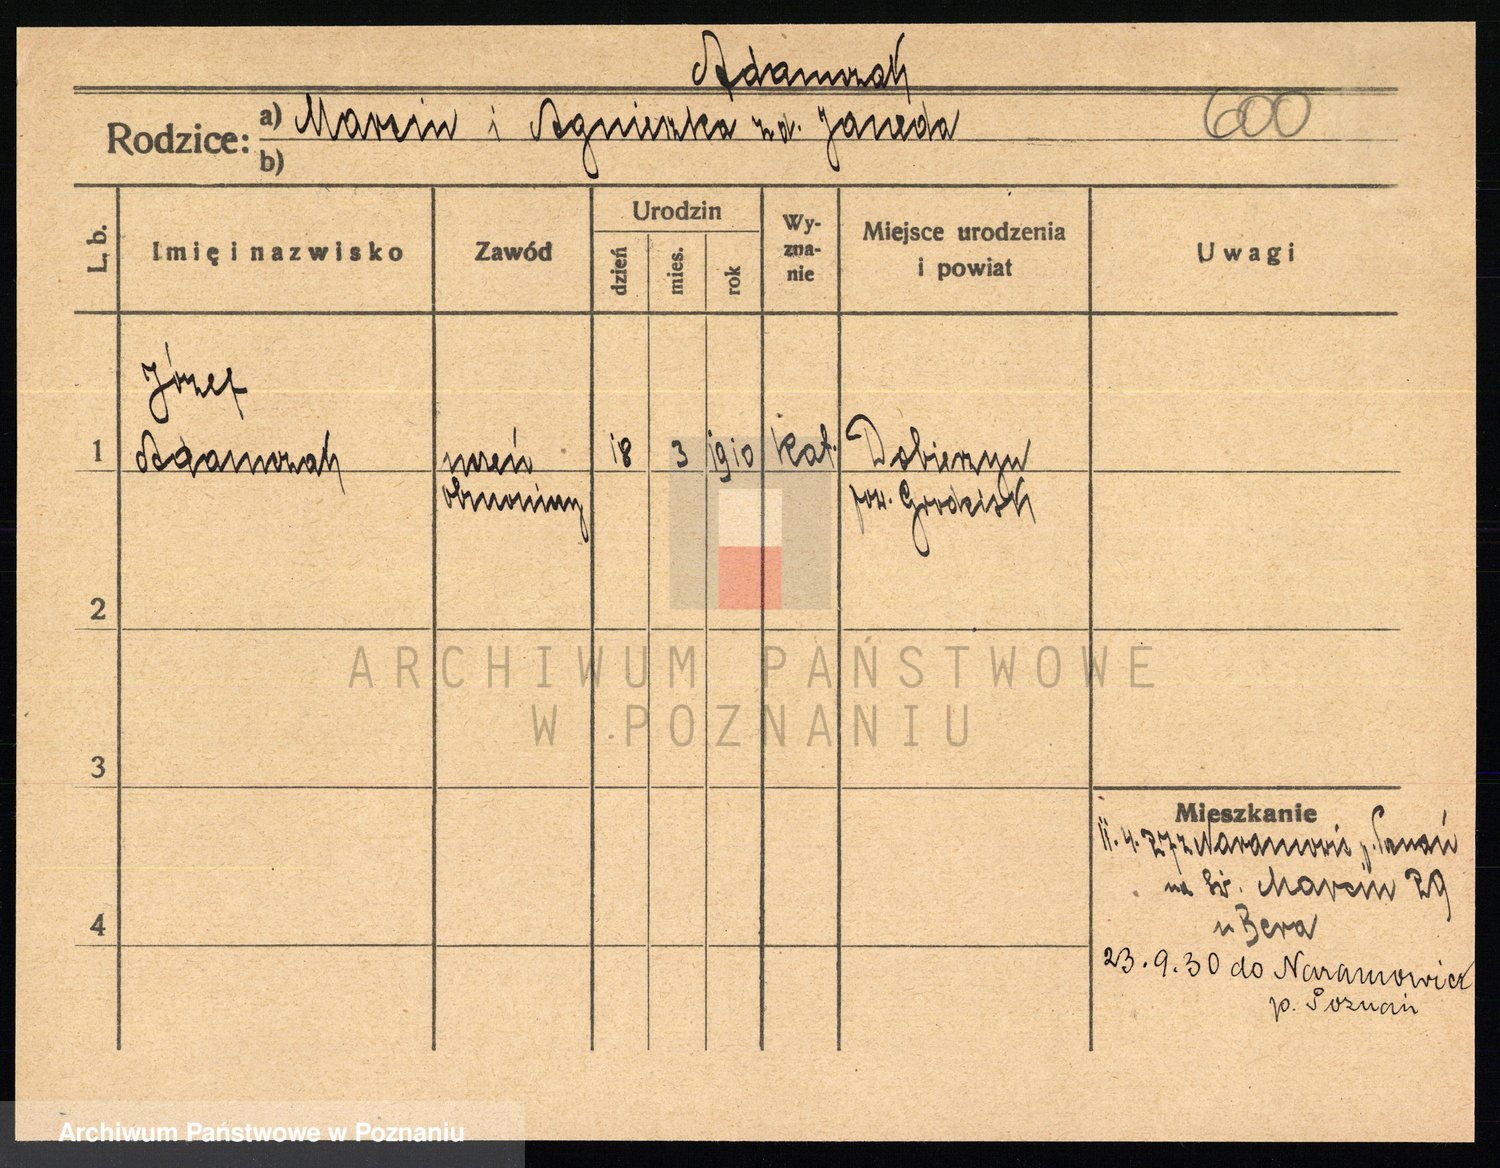 Adamczak
Rodzice: a) Marcin i Agnieszka z d. Janeda
600
b)
L. b.
Imię i nazwisko
Zawód
Urodzin
dzień
mies.
rok
Wy-
zna-
nie
Miejsce urodzenia
i powiat
Uwagi
Józef
1 Adamczak uczeń 18 3 1910 kat. Dobieżyn
pow. Grodzisk
2
ARCHIWUM PAŃSTWOWE
W POZNANIU
3
Mieszkanie
11.4.27 z Naramowic p. Poznań
na św. Marcin 29
4
u Bera
23.9.30 do Naramowicz
p. Poznań
Archiwum Państwowe w Poznaniu